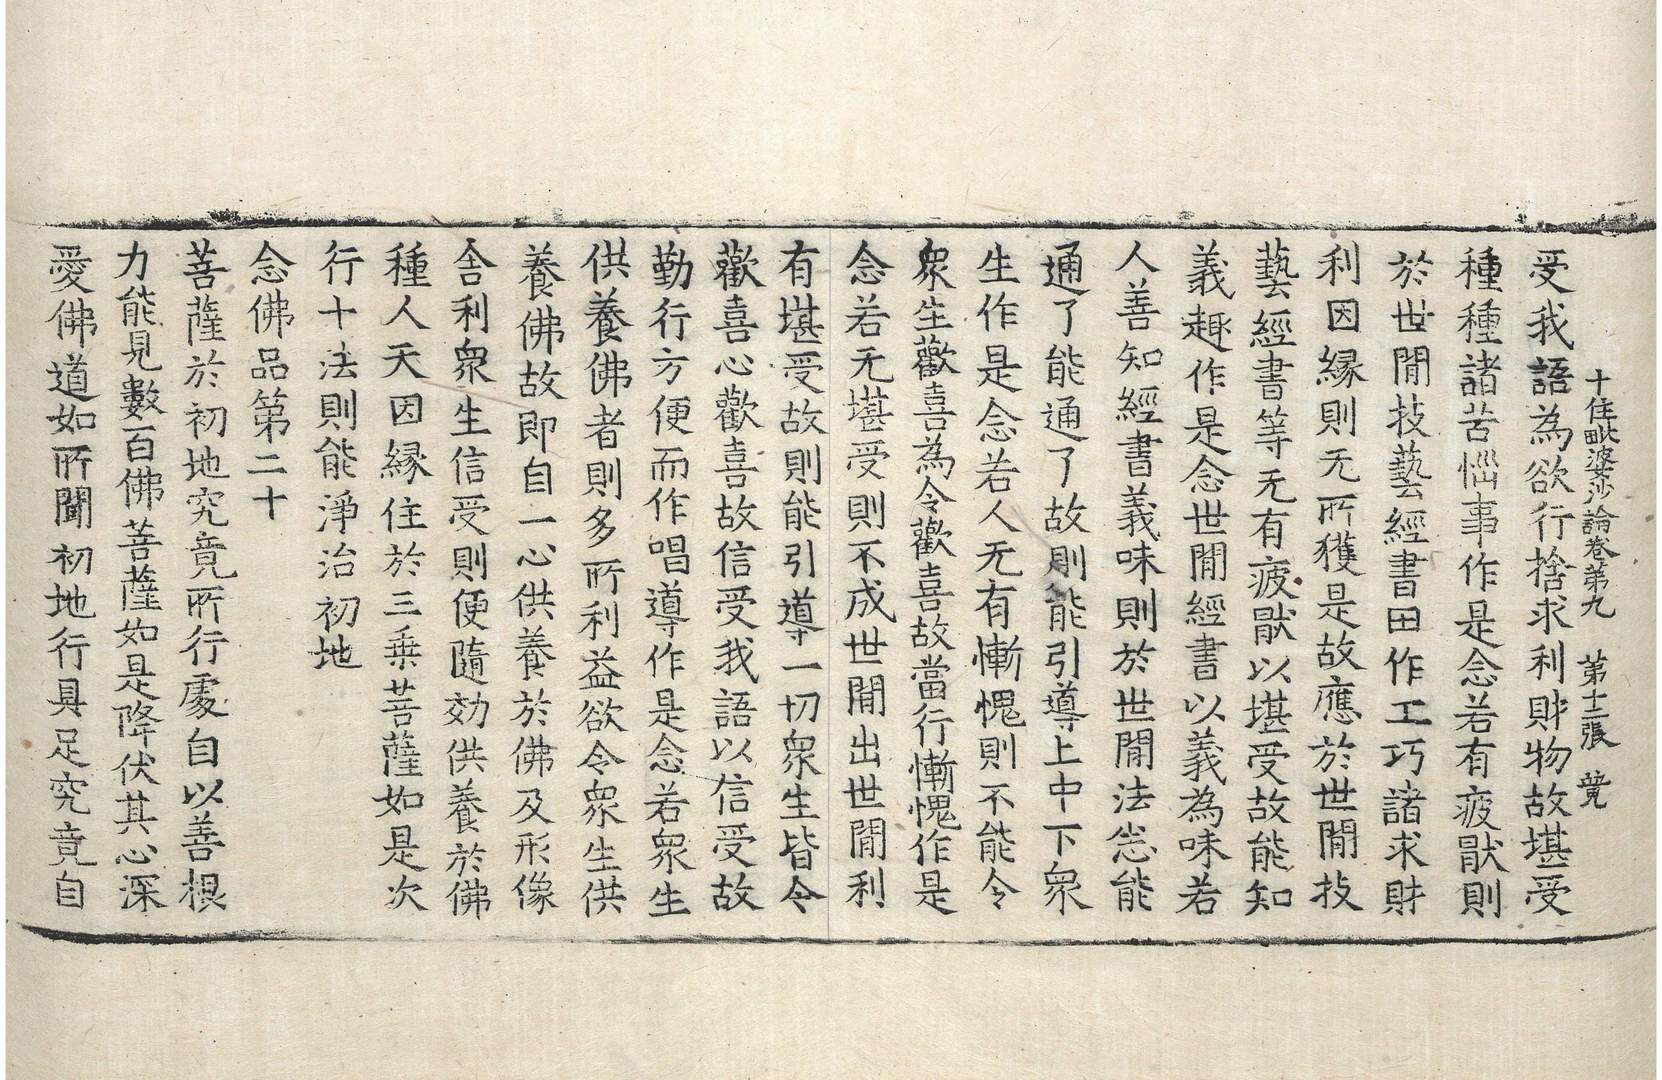 十住毗婆沙論卷第九　第十二張　竟
受我語為欲行捨求利財物故堪受
種種諸苦惱事作是念若有疲猒則
於世間技藝經書田作工巧諸求財
利因縁則无所獲是故應於世間技
藝經書等无有疲猒以堪受故能知
義趣作是念世間經書以義為味若
人善知經書義味則於世間法悉能
通了能通了故則能引導上中下衆
生作是念若人无有慚愧則不能令
衆生歡喜為令歡喜故當行慚愧作是
念若无堪受則不成世間出世間利
有堪受故則能引導一切衆生皆令
歡喜心歡喜故信受我語以信受故
勤行方便而作唱導作是念若衆生
供養佛者則多所利益欲令衆生供
養佛故即自一心供養於佛及形像
舎利衆生信受則便隨効供養於佛
種人天因縁住於三乗菩薩如是次
行十法則能淨治初地
念佛品第二十
菩薩於初地究竟所行處自以善根
力能見數百佛菩薩如是降伏其心深
愛佛道如所聞初地行具足究竟自